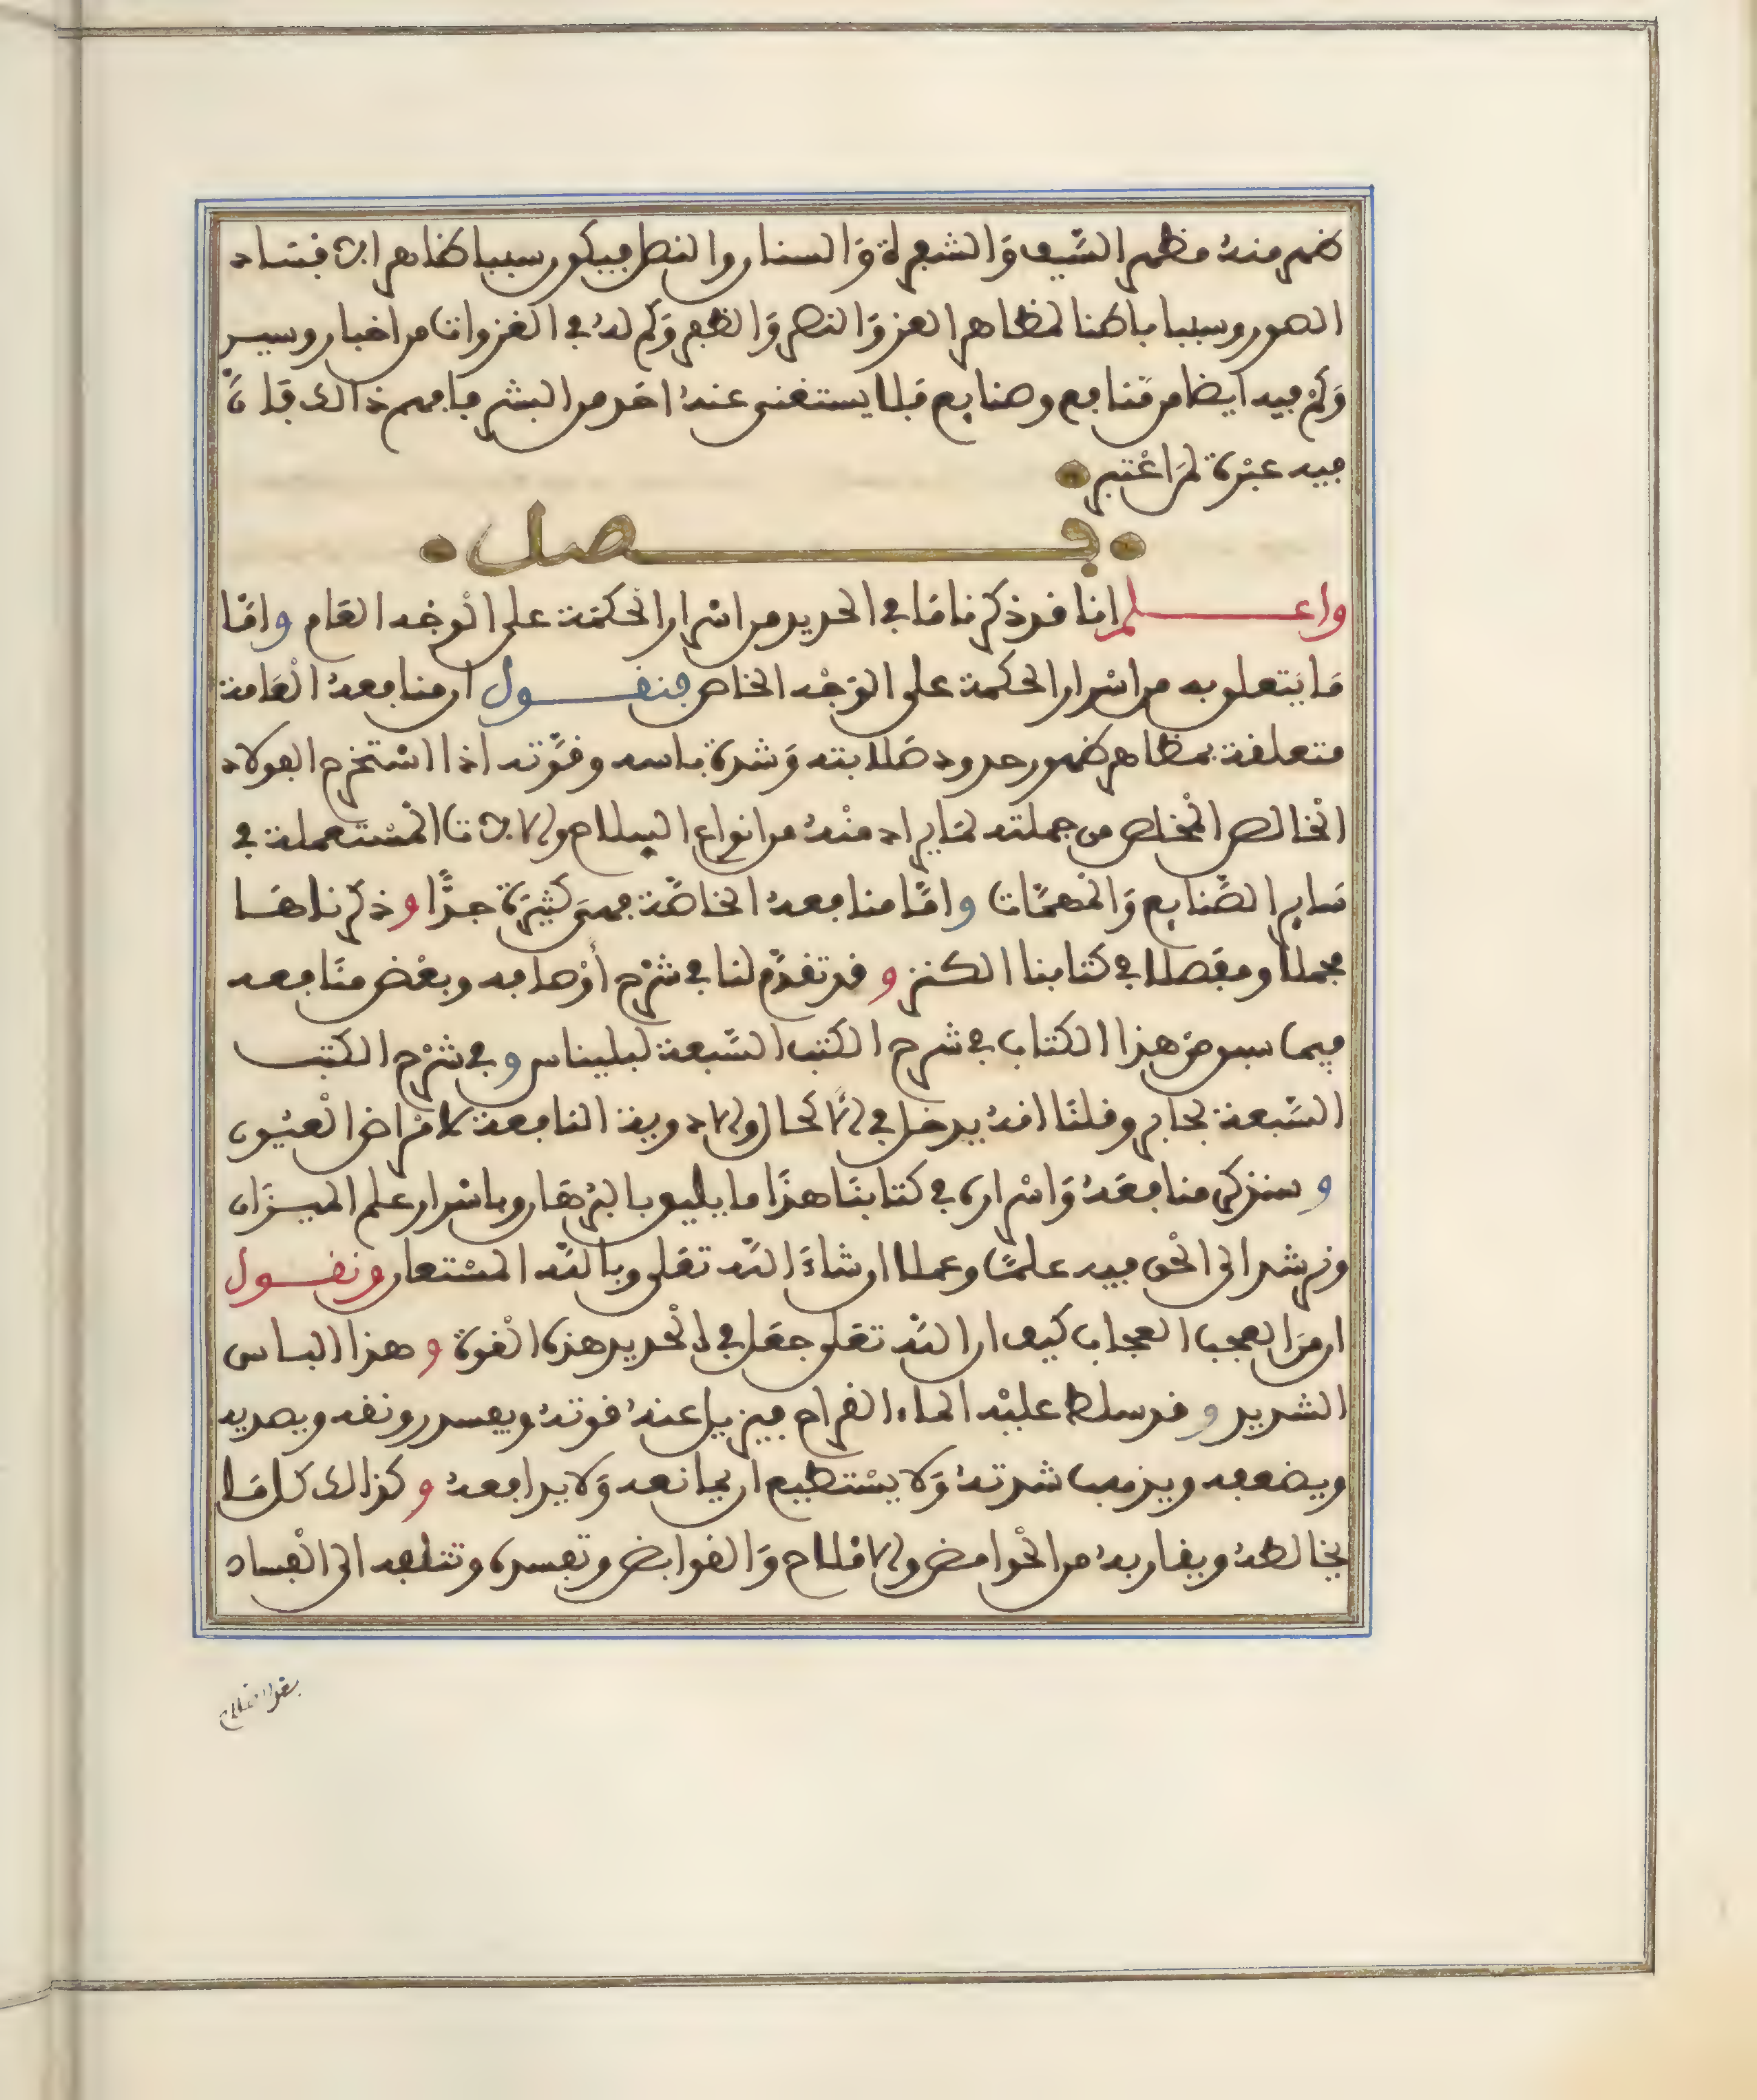 ظهر منه مظهر السَّيف وَالشفرة وَالسنان والنصل فيكون سببا ظاهرا لافساد
الصور وسببا باطنا لمظاهر العز وَالنصر وَالظفر وَكم له في الغزوات من اخبار وسير
وَكَمْ فيه ايضا من مَّنافع وصنايع فلا يستغنى عنه احَد من البشر فافهم ذالك فَان
فيه عبْرة لمَن اعْتبر
فصل
واعلم انا قد ذكرنا مَا في الحديد من اسْرار الحكمَة على الْوجْه العَام وامَّا
مَا يَتعلق به من اسْرار الحكمة على الوَجْه الخاص فنقول ان منافعه الْعَامة
متعلقة بمظاهر ظهور حدود صَلابته وَشدة باسه وقوَّته اذا اسْتخرج الفولاد
الْخالص الْمخلص من جملته لمَا يراد منْه من انواع السلاح والالات الْمسْتعملة في
سَاير الصَّنايع وَالْمهمَّات وامَّا منافعه الخاصَّة فهىَ كثيرَة جدًّا وذكرناهَا
مجملا ومفصلا في كتابنا الكنز وقد تقدَّم لنا في شرْح أوْصافه وبعْض منَافعه
فيما سبق منْ هذا الكتاب في شرح الكتب السَّبعة لبليناس وفي شرْح الكتب
السَّبعة لجابر وقلنَا انه يدخل في الاكحال والادوية النافعة لامْراض الْعيُون
وسنذكر منافعَه وَاسْراره في كتابنَا هذَا ما يليق بالبرْهَان وباسْرار علم الميزَان
ونرشد الى الْحق فيه علمًا وعملا ان شاءَ اللَّه تعَلى وباللَّه المسْتعان ونقول
ان منَ العجب العجاب كيف ان اللَّه تعَلى جعَل في الْحديد هذه الْقوة وهذا الباس
الشديد وقد سلط عليْه الماء القراح فيزيل عنه قوته ويفسد رونقه ويصديه
ويضعفه ويذهب شدته وَلا يسْتطيع ان يمانعه وَلا يدافعه وكذالك كل مَا
يخالطه ويقاربه من الْحوامض والاملاح وَالقوابض وتفسده وتتلفه الى الْفساد